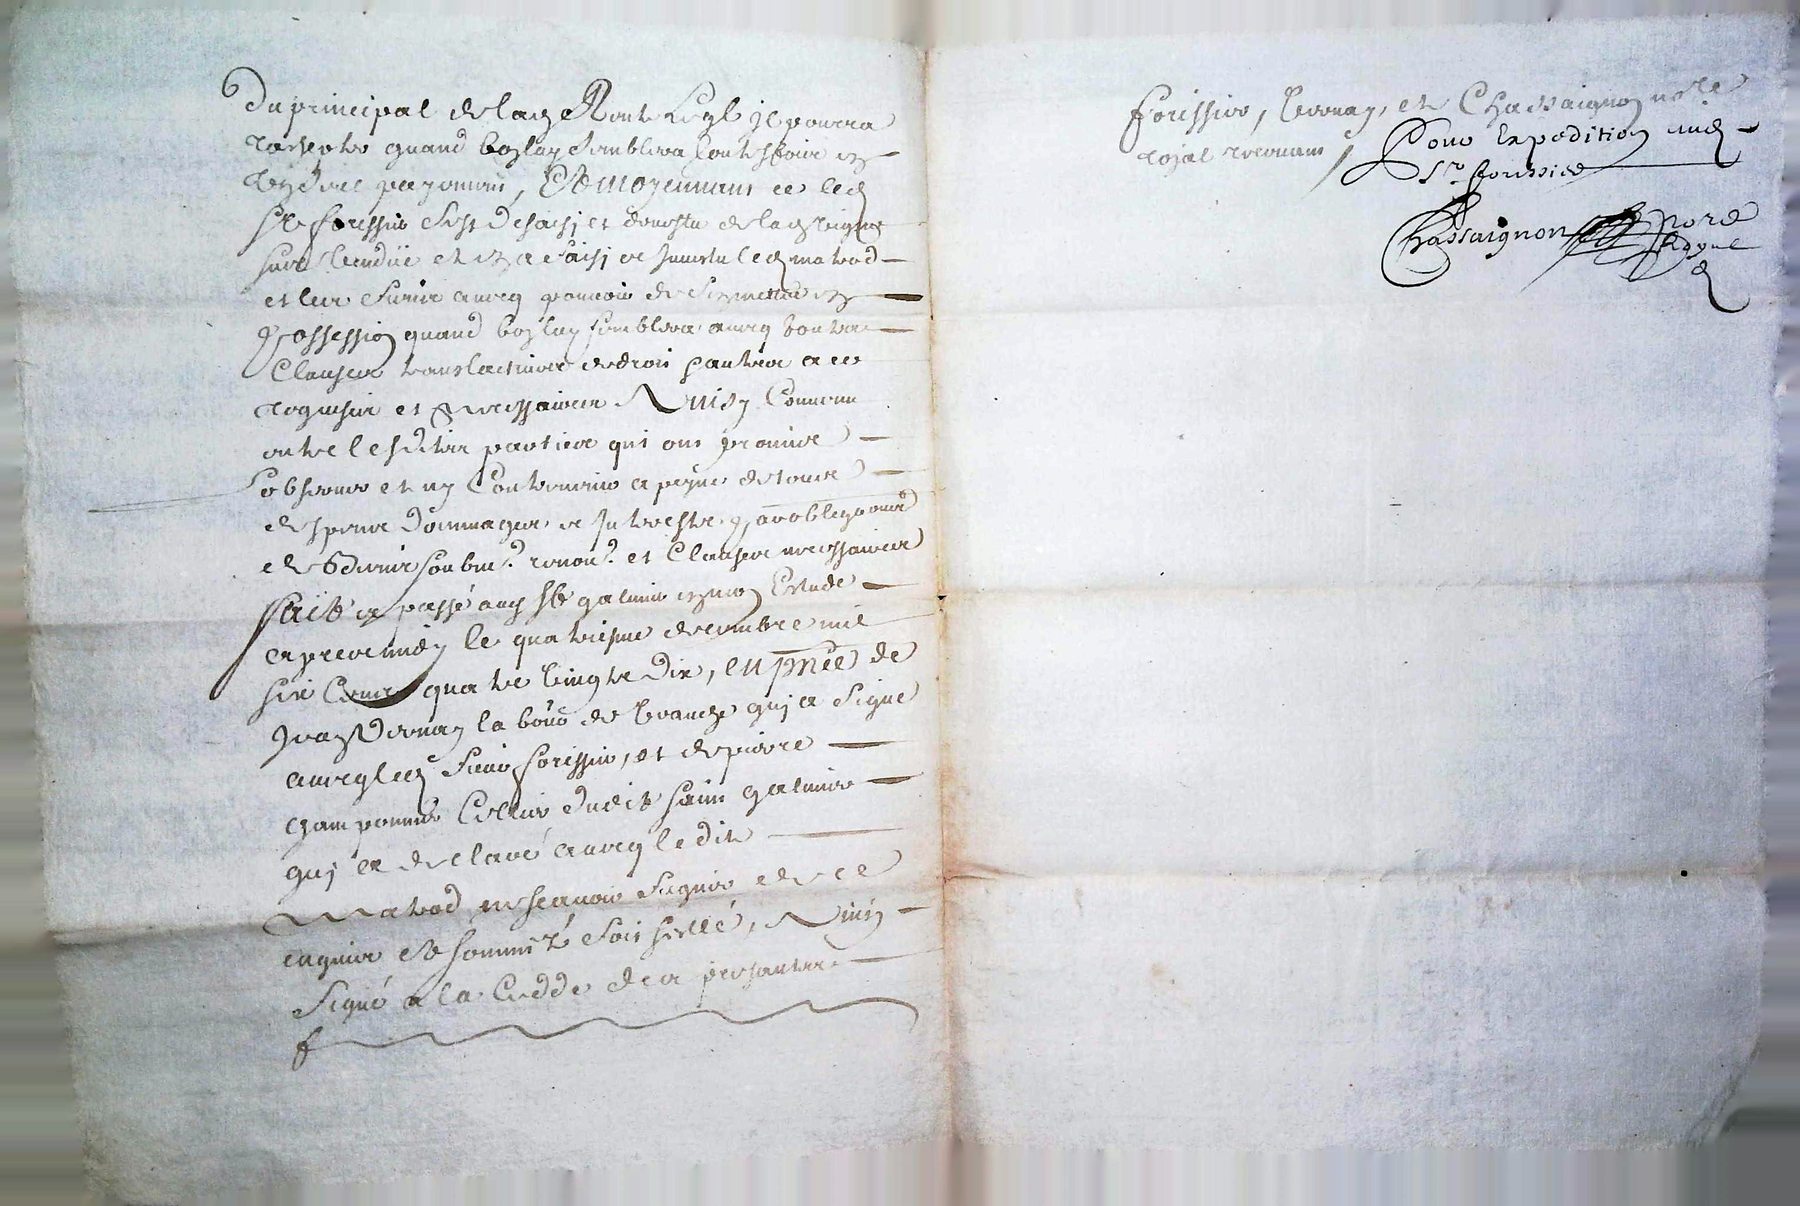 Du principal de lad Rente Leql il pourra
racepter quand bon luy semblera toutesfois en
Led payement, Et moyennant ce led
Sr forissier sest desaisi et devestu de lad vigne
sus vendue et en a saisi et Invetu led matrod
et les siens avecq pouvoir de se mettre en
possession quand bon luy semblera avecq toutes
Clauses translatives de droit j'antes a ce
requises et necessaires Ainsy Convenu
entre lesdites parties qui ont promis
observer et ny Contrevenir a peyne de tous
despens dommages et Interests, p. obligeons
et de biens soubm.? renon.? et Clauses necessaires
fait et passé aud St galmier en mon Estude
apres midy le quatriesme decembre mil
six Cent quatre vingts dix, en pnce de
Jean Vernay labour de Veauche qui a signé
avecq led sieur forissier, et de pierre
Champonnier Cellier dudit sain galmier
qui a declaré avecq le dit
Matrod ne scavoir signer de ce
enquis et sommés Soit scellé, Ainsy
Signé a la Cedde des presantes
forissier, Vernay, et Chassaignon nore
royal recevant
Pour Expedition aud
Sr forissier
Chassaignon Nore
Royal